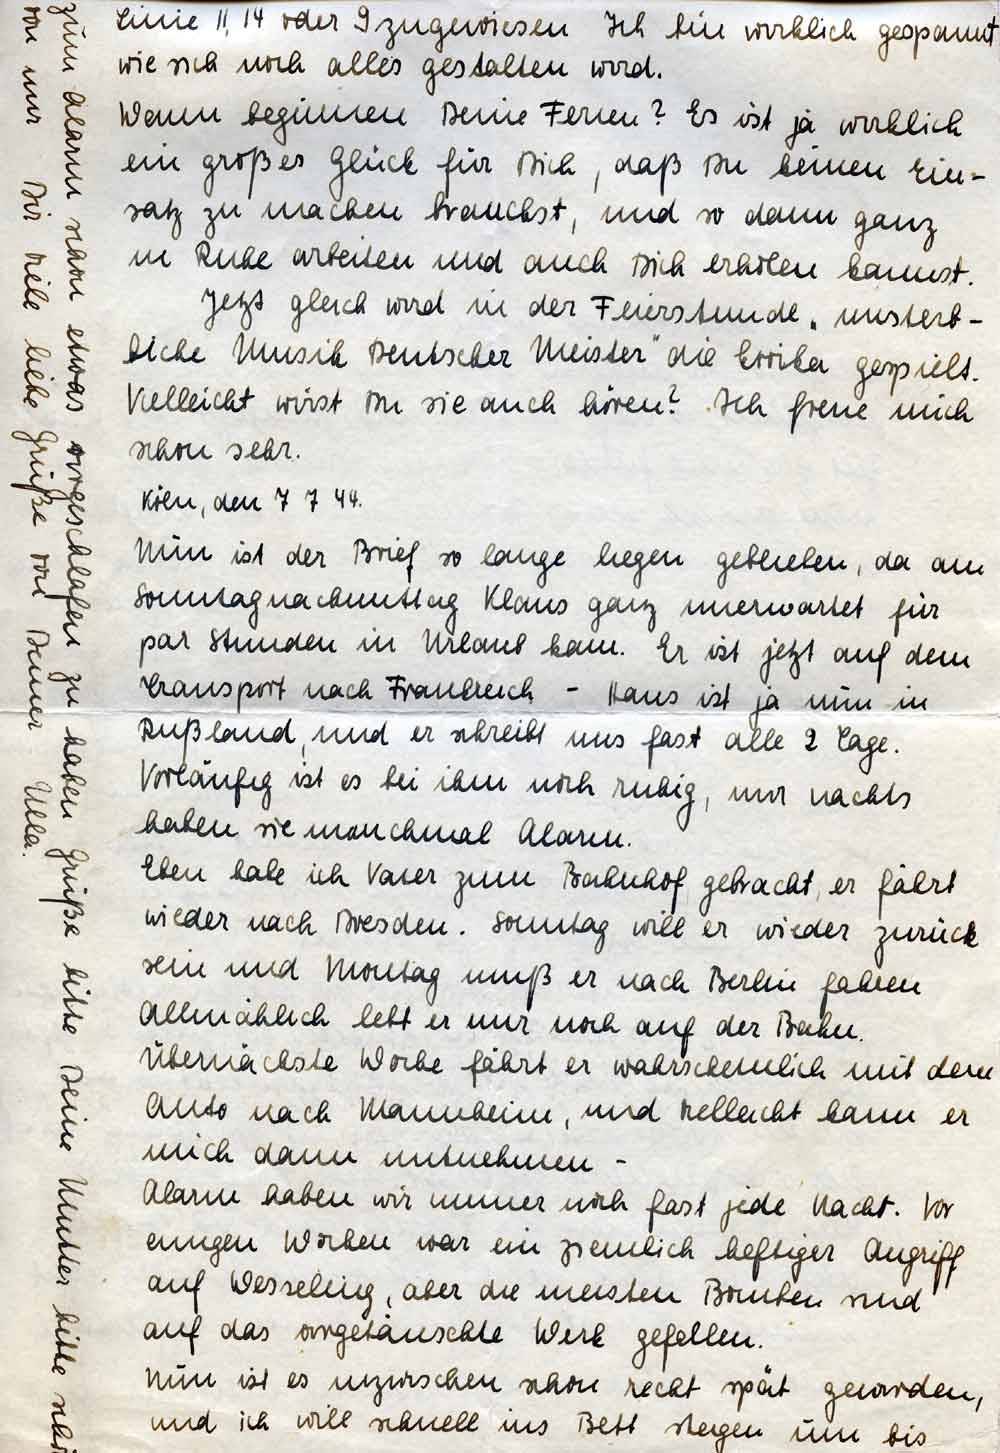 Linie 11, 14 oder 9 zugewiesen Ich bin wirklich gespannt
wie sich noch alles gestalten wird.
Wann beginnen Deine Ferien? Es ist ja wirklich
ein großes Glück für Dich, daß Du keinen Ein-
satz zu machen brauchst, und so dann ganz
in Ruhe arbeiten und auch Dich erholen kannst.
Jetzt gleich wird in der Feierstunde „unsterb-
liche Musik Deutscher Meister" die Eroika gespielt.
Vielleicht wirst Du sie auch hören? Ich freue mich
schon sehr.
Köln, den 7 7 44.
Nun ist der Brief so lange liegen geblieben, da am
Sonntagnachmittag Klaus ganz unerwartet für
par Stunden in Urlaub kam. Er ist jetzt auf dem
Transport nach Frankreich - Hans ist ja nun in
Rußland, und er schreibt uns fast alle 2 Tage.
Vorläufig ist es bei ihm noch ruhig, nur nachts
haben sie manchmal Alarm.
Eben habe ich Vater zum Bahnhof gebracht, er fährt
wieder nach Dresden. Sonntag will er wieder zurück
sein und Montag muß er nach Berlin fahren
Allmählich lebt er nur noch auf der Bahn.
Übernächste Woche fährt er wahrscheinlich mit dem
Auto nach Mannheim, und vielleicht kann er
mich dann mitnehmen -
Alarm haben wir immer noch fast jede Nacht. Vor
einigen Wochen war ein ziemlich heftiger Angriff
auf Wesseling, aber die meisten Bomben sind
auf das vorgetäuschte Werk gefallen.
Nun ist es inzwischen schon recht spät geworden,
und ich will schnell ins Bett steigen um bis
zum Alarm schon etwas vorgeschlafen zu haben Grüße bitte Deine Mutter bitte
von mir Dir viele liebe Grüße von Deiner Ulla.